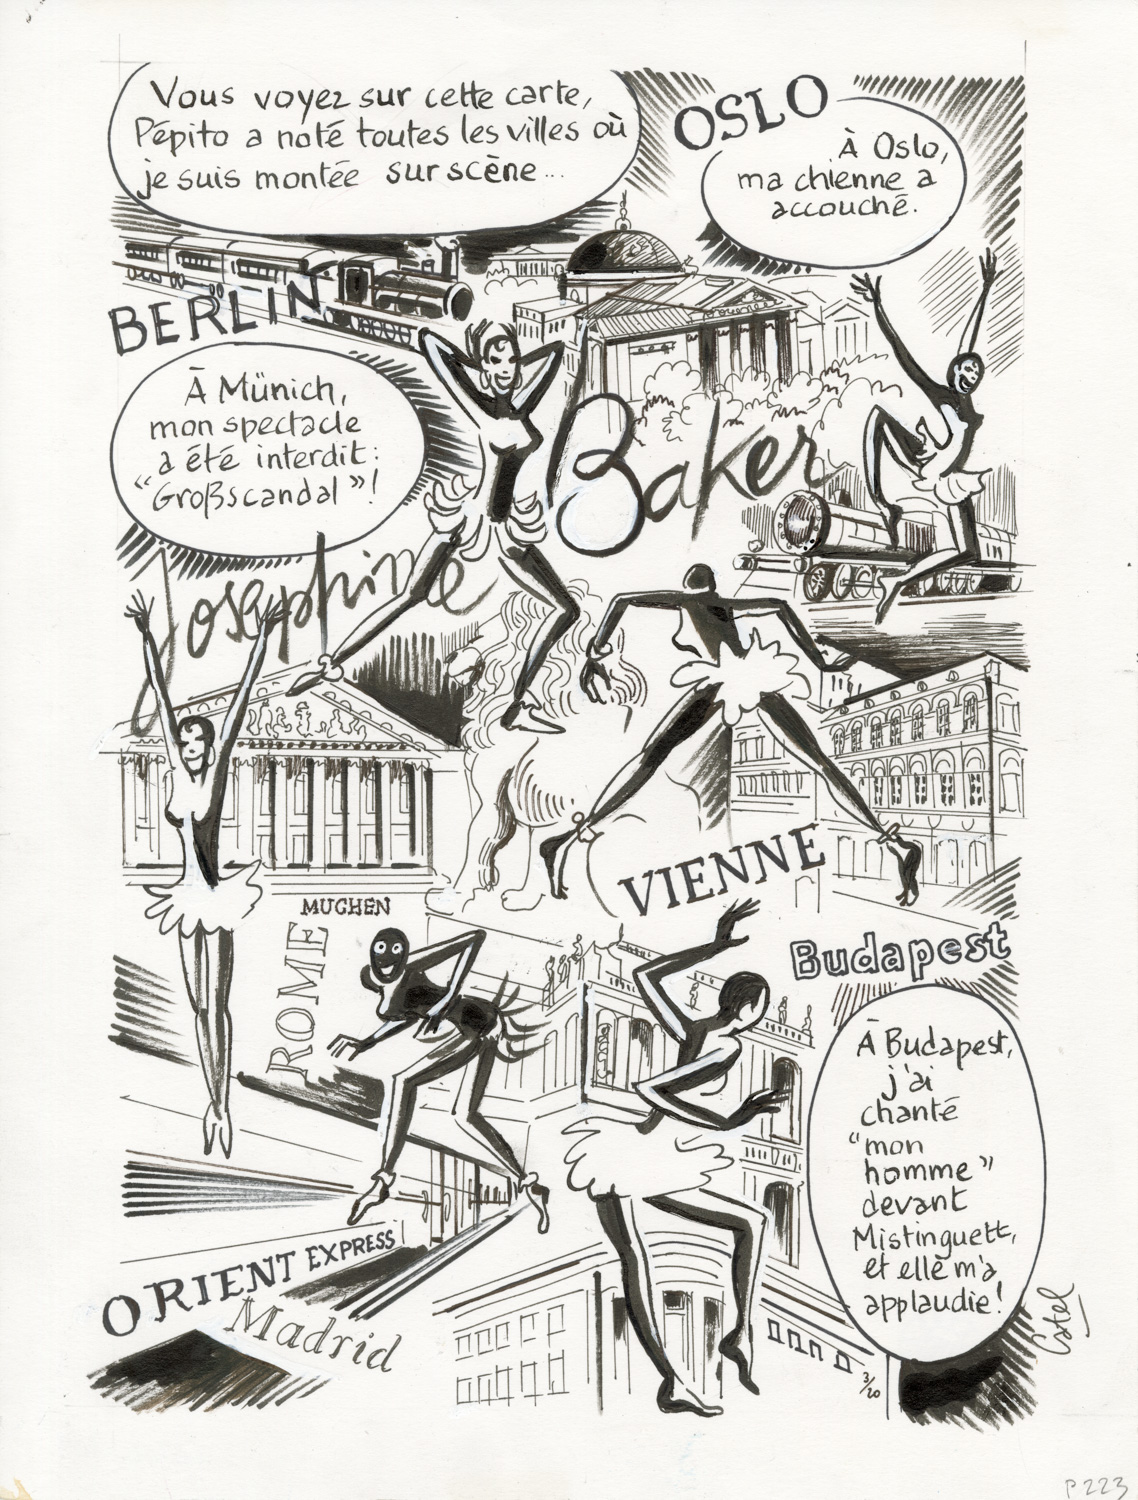 Vous voyez sur cette carte,
Pépito a noté toutes les villes où
je suis montée sur scène...
OSLO
À Oslo,
ma chienne a
accouché.
BERLIN
À Münich,
mon spectacle
a été interdit:
"Großscandal"!
Josephine
Baker
VIENNE
MUCHEN
ROME
Budapest
À Budapest,
j'ai
chanté
"mon
homme"
devant
Mistinguett,
et elle m'a
applaudie!
ORIENT EXPRESS
Madrid
3/20
Catel
P223